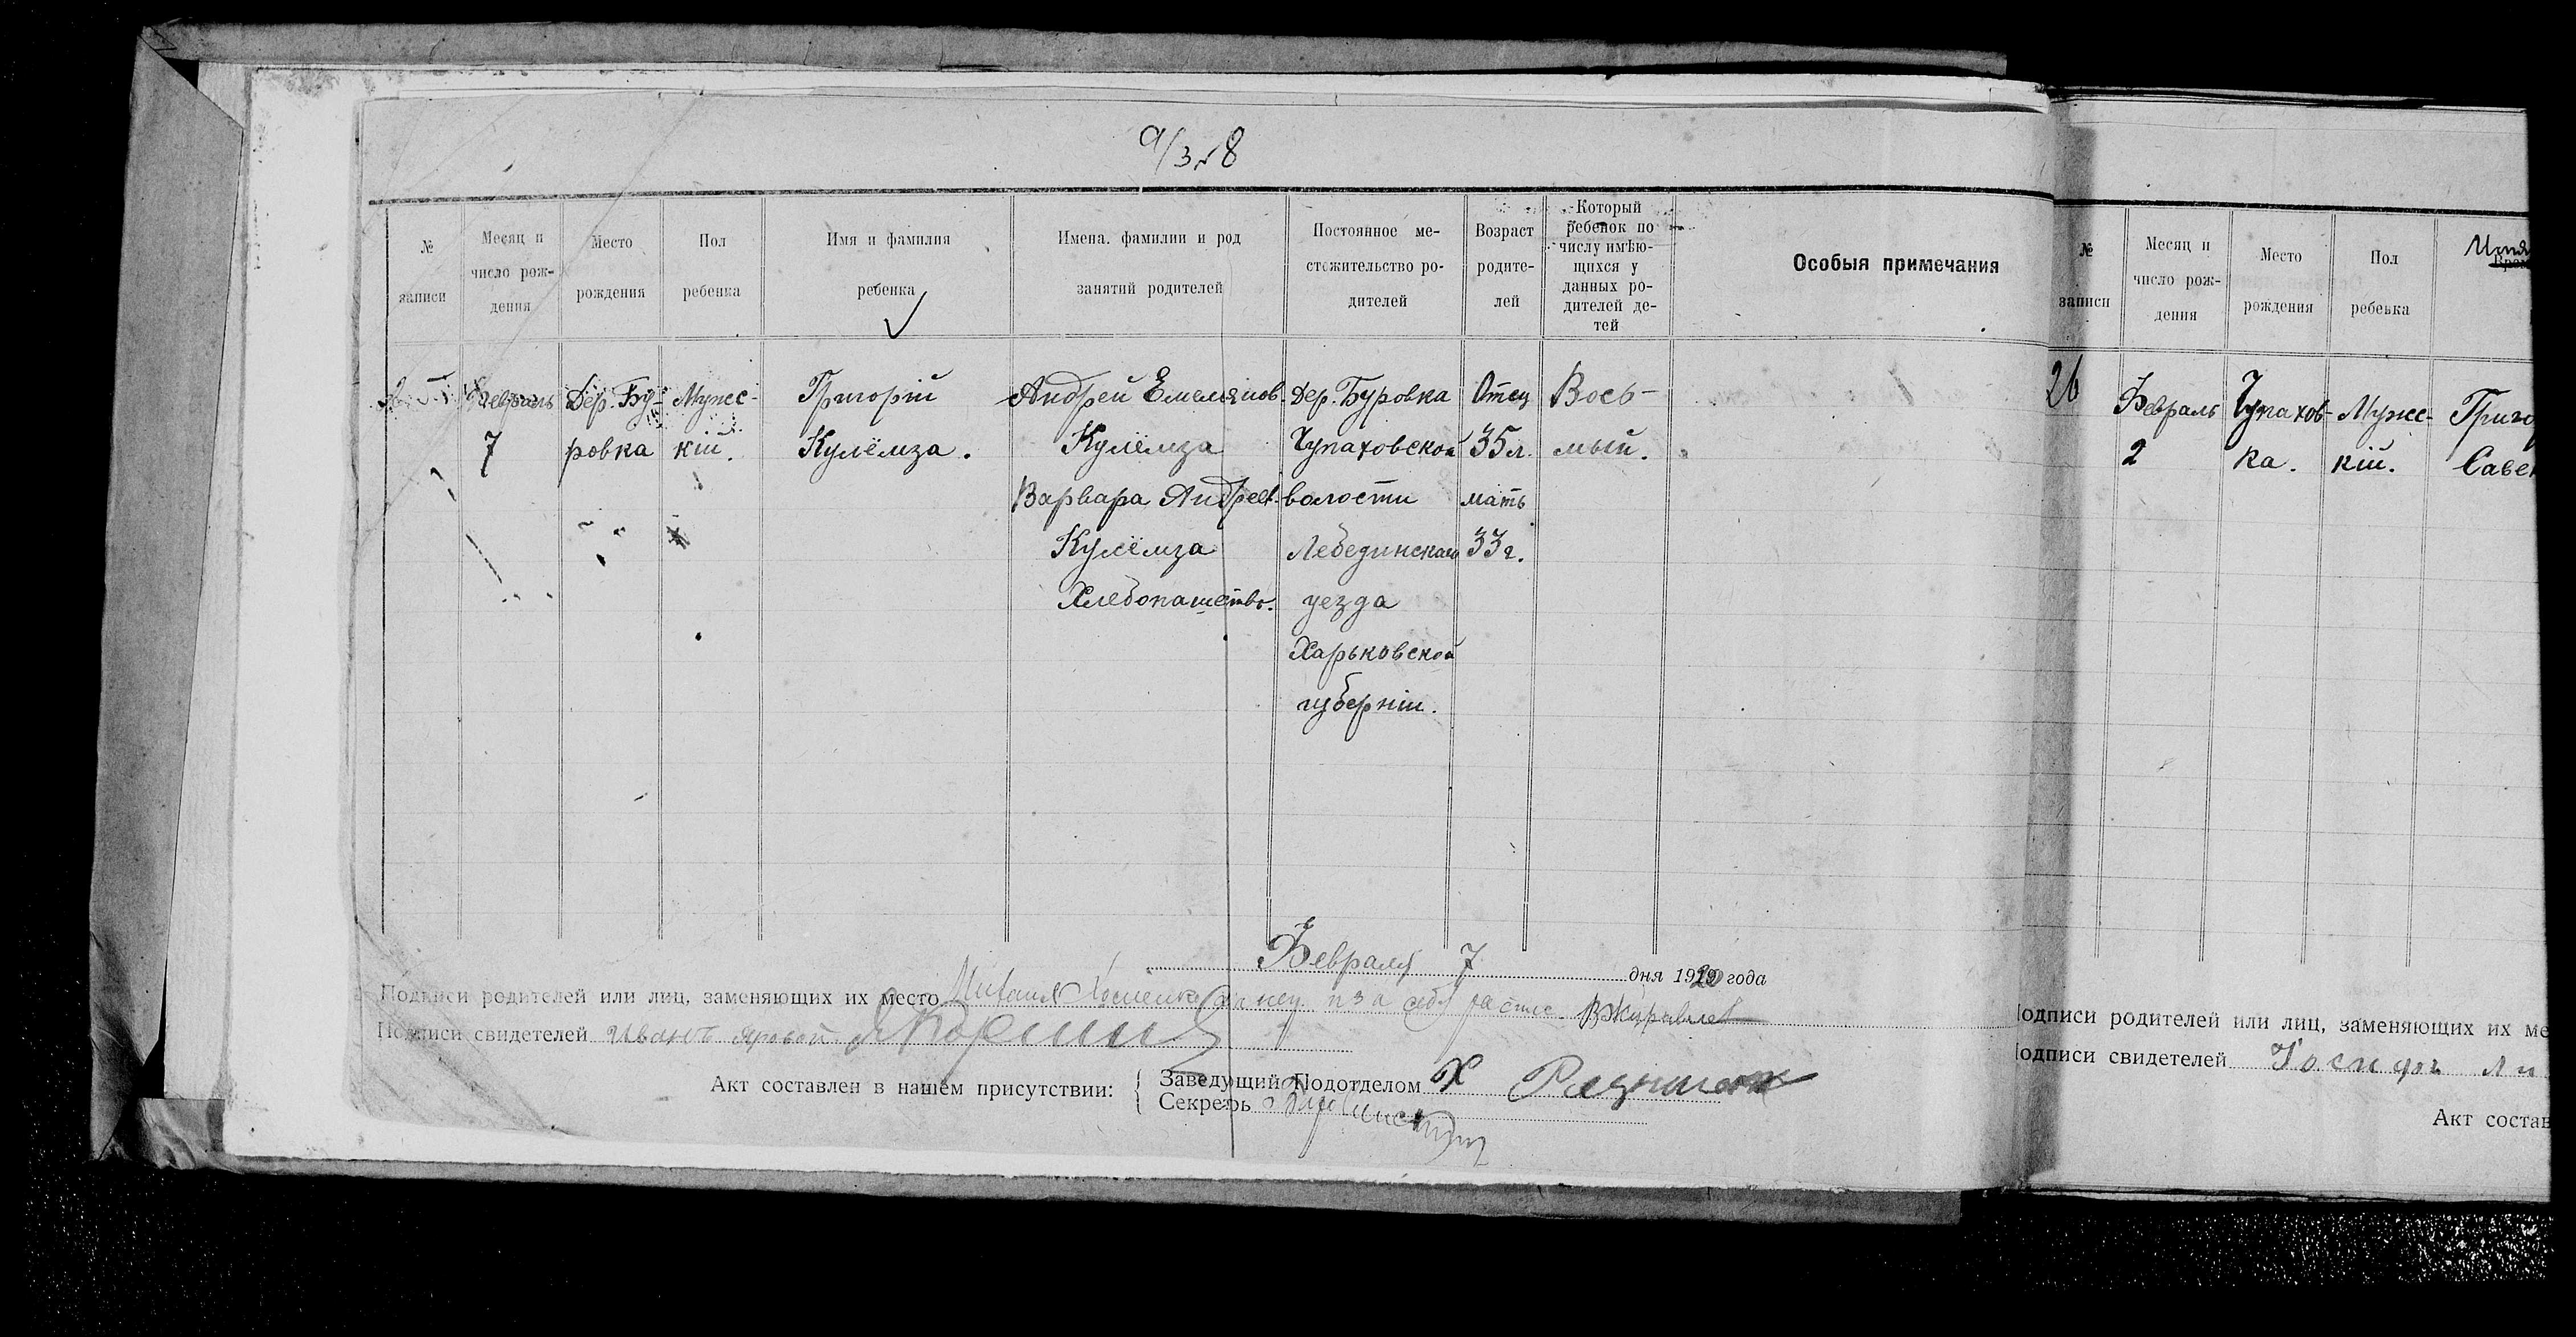 №
записи
Месяц и
число рож-
дения
Место
рождения
Пол
ребенка
Имя и фамилия
ребенка
Имена. фамилии и род
занятий родителей
Постоянное ме-
стожительство ро-
дителей
Возраст
родите-
лей
Который
ребенок по
числу имѣю-
щихся у
данных ро-
дителей де-
тей
Особыя примечания
Февраль
7
Дер. Бу-
ровка
Мужес-
кій.
Григорій
Кулёмза.
Андрей Емелянов.
Кулёмза
Варвара Андреев.
Кулёмза
Хлебопашетво.
Дер. Буровка
Чупаховской
волости
Лебединскаго
уезда
Харьковской
губерніи.
Отец
35 л.
мать
33 г.
Вось-
мый.
Февраля 7 дня 1920 года
Подписи родителей или лиц, заменяющих их место
Подписи свидетелей Иванъ Яровой
Акт составлен в нашем присутствии:
Заведующий Подотделом
Секрерь
№
записи
Месяц и
число рож-
дения
Место
рождения
Пол
ребенка
Имя
26
Февраль
2
Чупахов-
ка.
Мужес-
кій.
Григо
Савен
одписи родителей или лиц, заменяющих их ме
одписи свидетелей
Акт состав